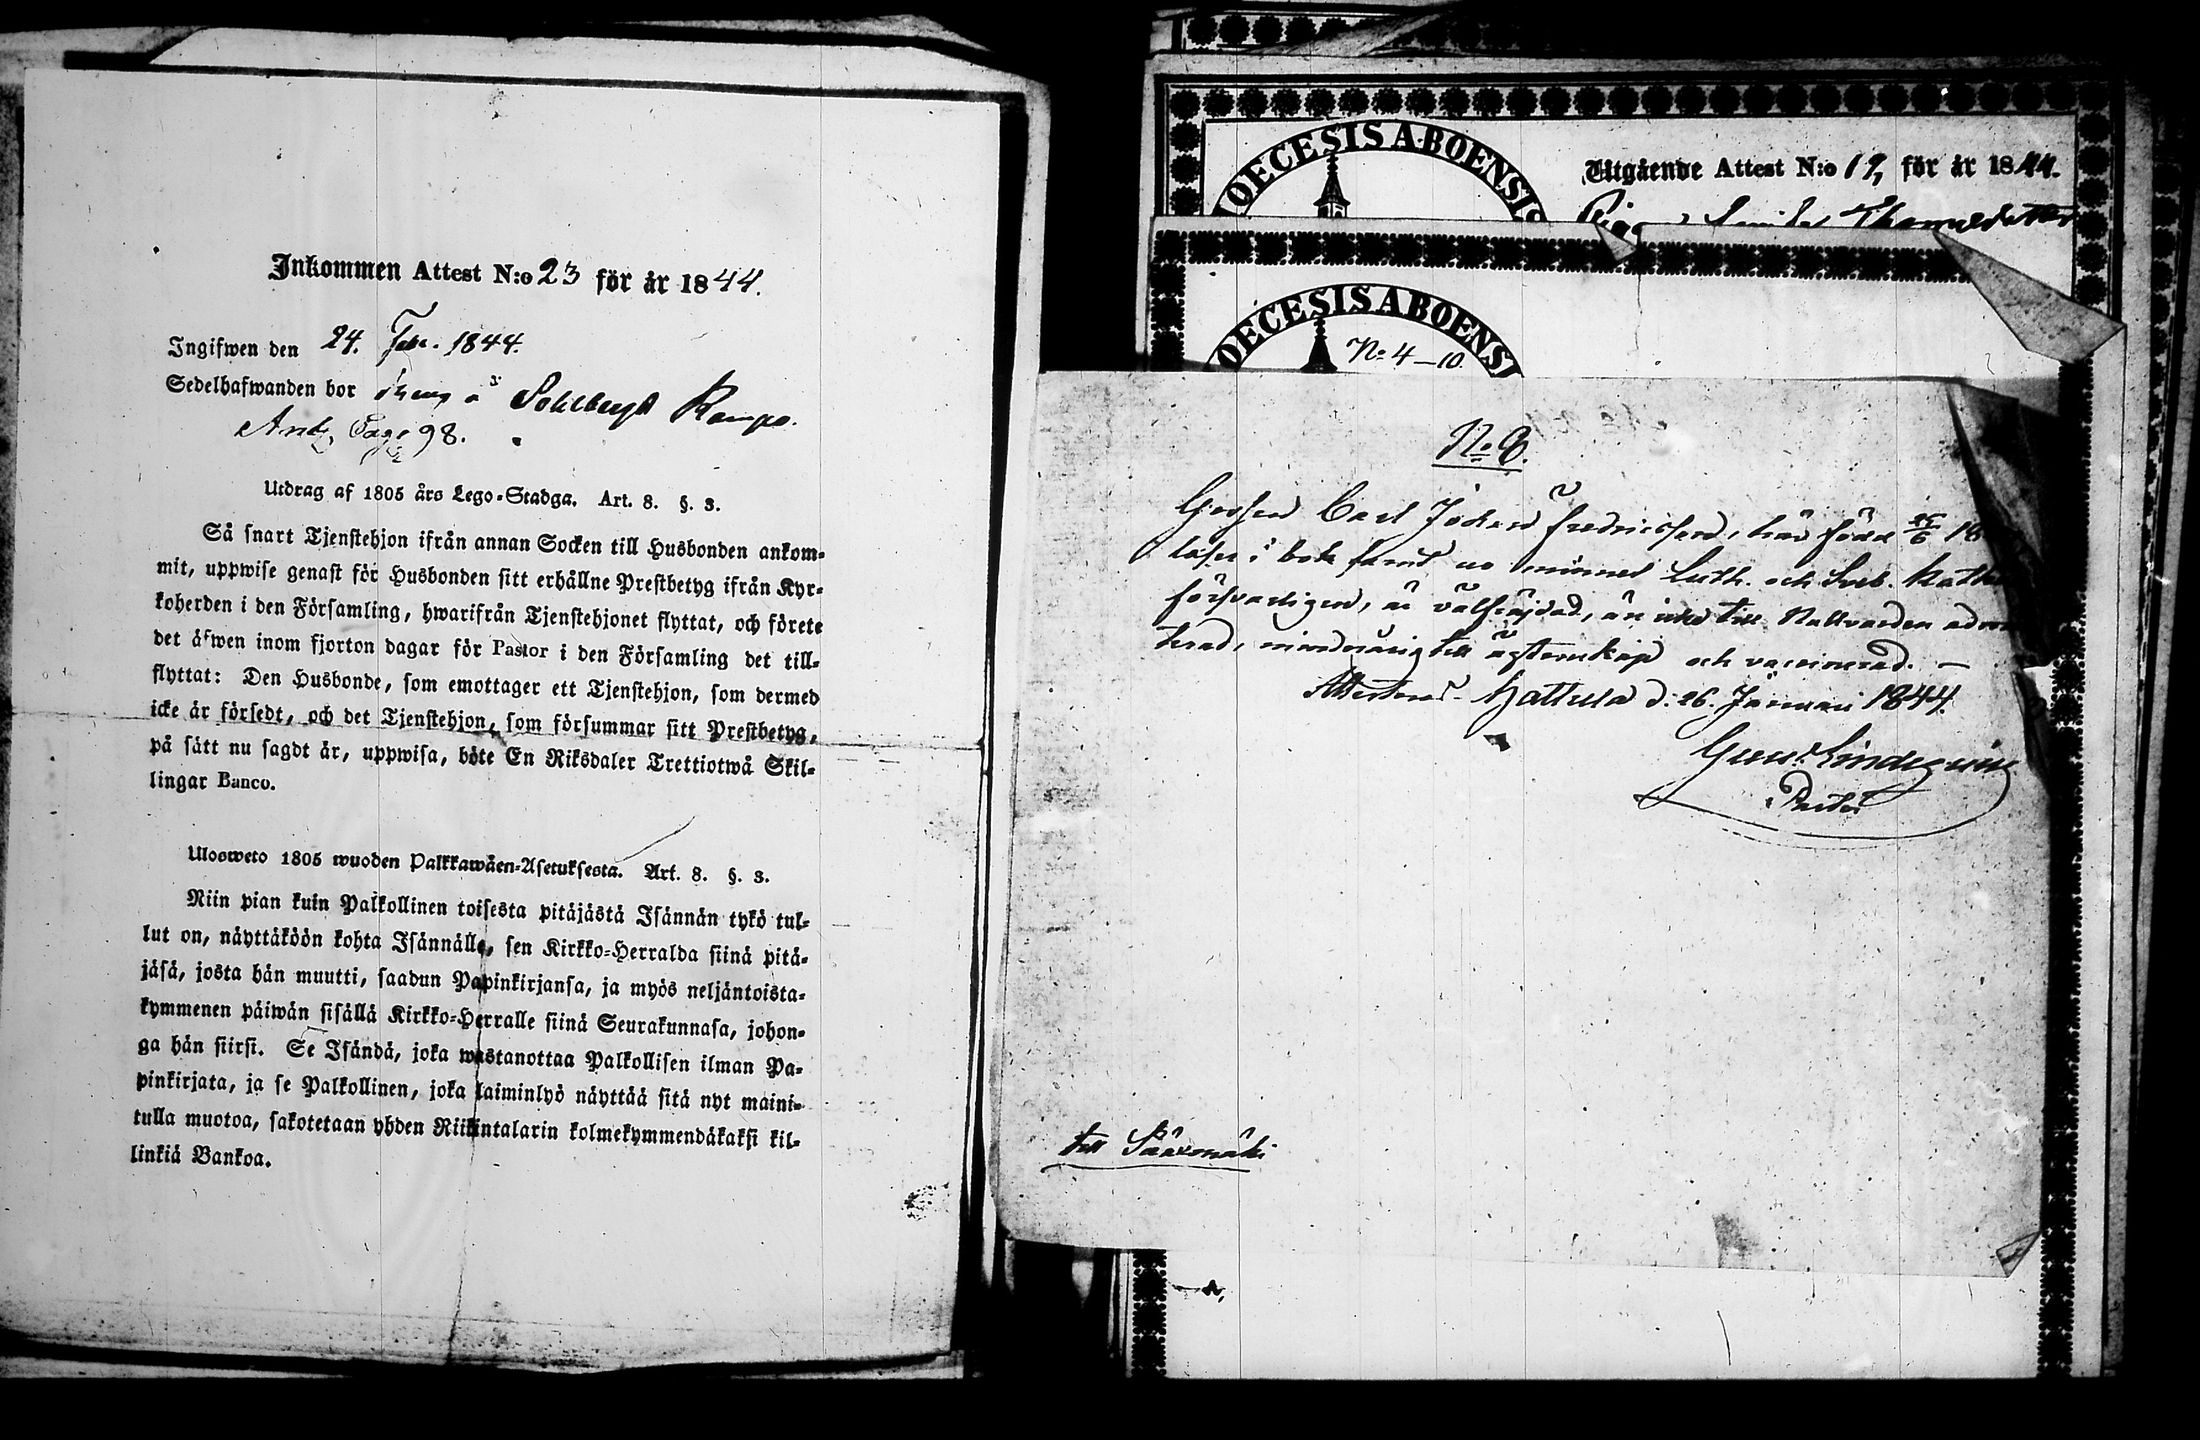 Inkommen Attest N:o 23 för år 1844.
Ingifwen den 24. Febr. 1844.
Sedelhafwanden bor dreng å Sohlbergs Rampo.
Pag. 98.
Utdrag af 1805 års Lego-Stadga. Art. 8. §. 3.
Så snart Tjenstehjon ifrån annan Socken till Husbonden ankom-
mit, uppwise genast för Husbonden sitt erhållne Prestbetyg ifrån Kyr-
koherden i den Församling, hwarifrån Tjenstehjonet flyttat, och förete
det äfwen inom fjorton dagar för Pastor i den Församling det till-
flyttat: Den Husbonde, som emottager ett Tjenstehjon, som dermed
icke är försedt, och det Tjenstehjon, som försummar sitt Prestbetyg,
på sätt nu sagdt är, uppwisa, böte En Riksdaler Trettiotwå Skil-
lingar Banco.
Ulosweto 1805 wuoden Palkkawäen-Asetuksesta. Art. 8. §. 3.
Niin pian kuin Palkollinen toisesta pitäjästä Isännän tykö tul-
lut on, näyttäköön kohta Isännälle, sen Kirkko-Herralda siinä pitä-
jäsä, josta hän muutti, saadun Papinkirjansa, ja myös neljäntoista-
kymmenen päiwän sisällä Kirkko-Herralle siinä Seurakunnasa, johon-
ga hän siirsi. Se Isändä, joka wastanottaa Palkollisen ilman Pa-
pinkirjata, ja se Palkollinen, joka laiminlyö näyttää sitä nyt maini-
tulla muotoa, sakotetaan yhden Riikintalarin kolmekymmendäkaksi kil-
linkiä Bankoa.
IOECESIS ABOENSIS
Utgående Attest N:o 19, för år 1844.
Thomasdotter
OECESIS ABOENSI
No 4–10.
No 8.
Gossen Carl Johan Fredricsson, här född 25/6 18
läser i bok samt ur minnet Luth. och Sveb. Kat
försvarligen, är välfräjdad, än icke till Nattvarden adm
terad, minderårig till ägtenskap och vaccinerad. —
Attesterar Hattula d. 26. Januari 1844.
Gust. Lindeqvist
Pastor
till Sääxmäki